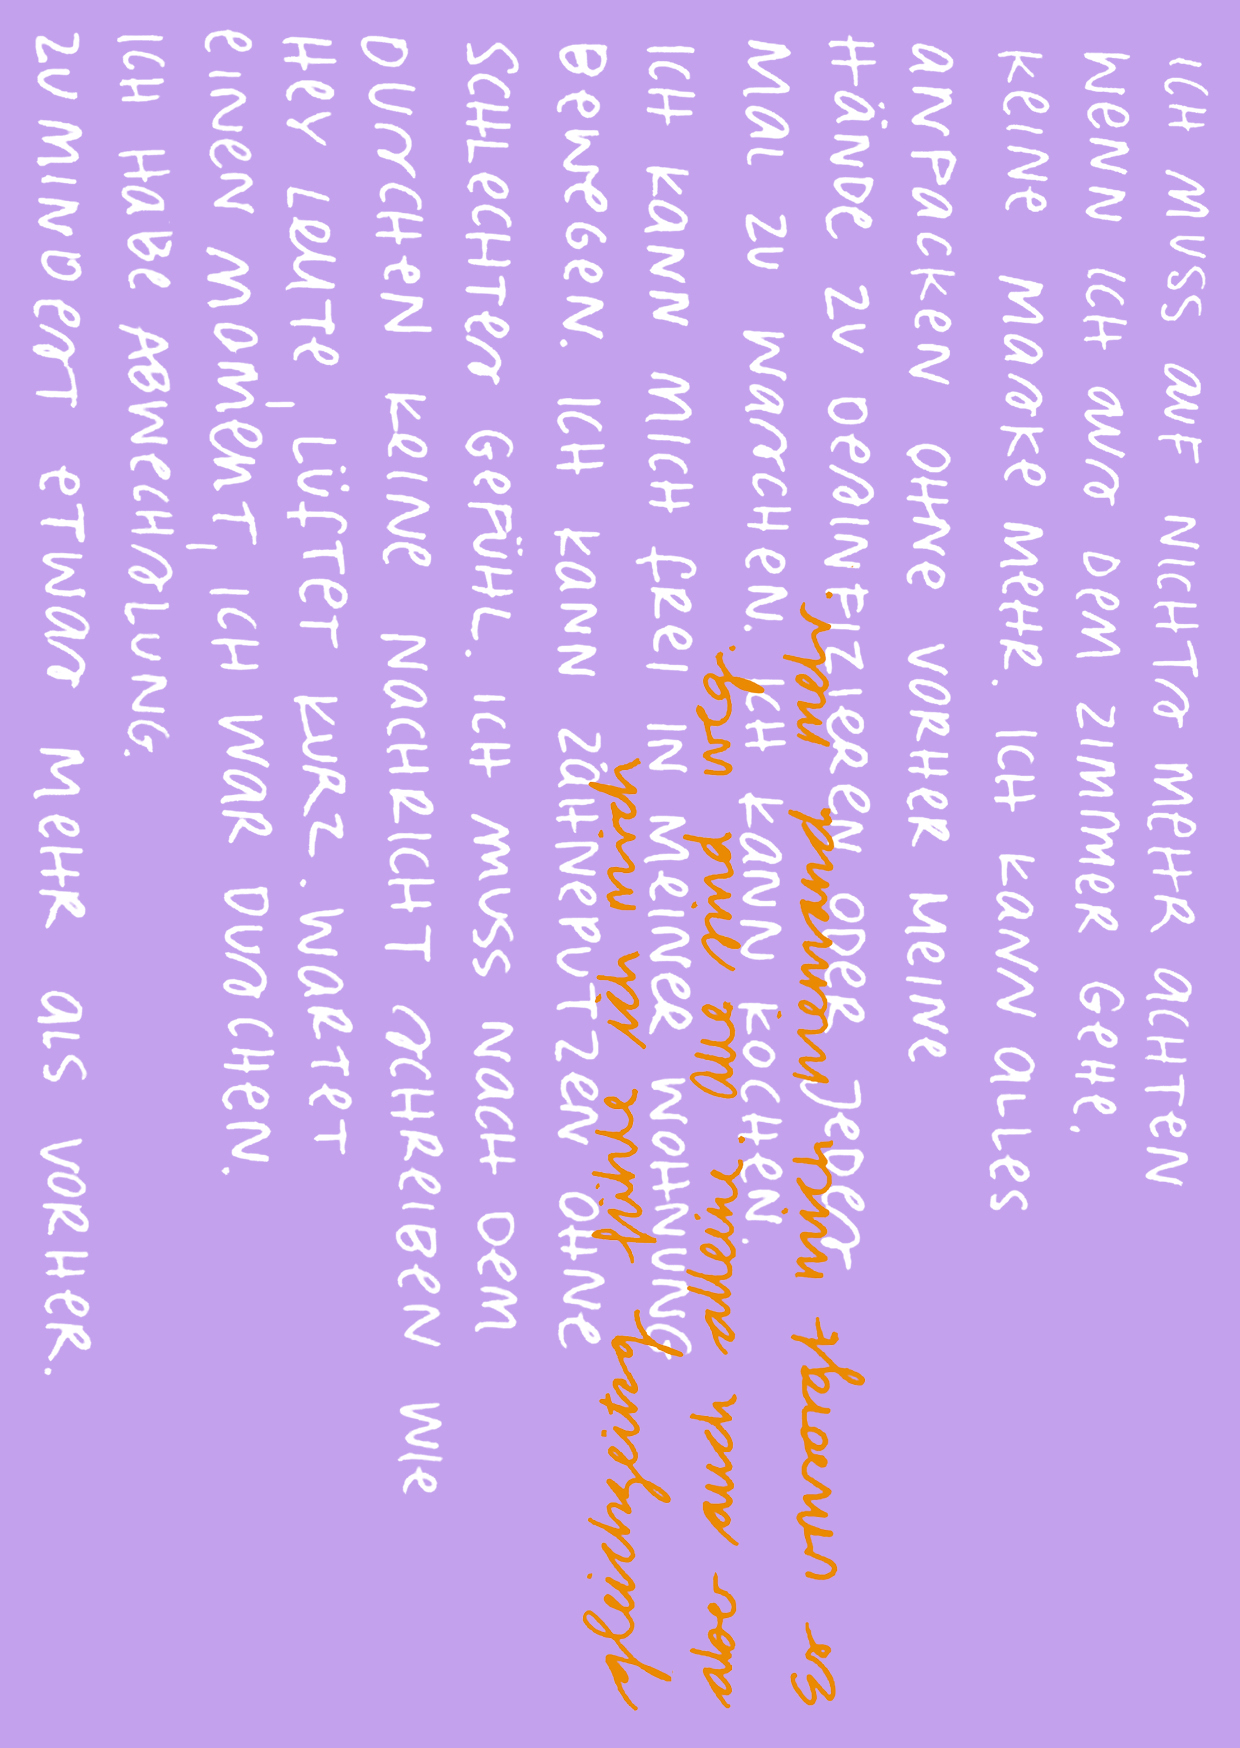 ICH MUSS AUF NICHTS MEHR ACHTEN
WENN ICH AUS DEM ZIMMER GEHE.
KEINE MASKE MEHR. ICH KANN ALLES
ANPACKEN OHNE VORHER MEINE
HÄNDE ZU DESINFIZIEREN ODER JEDES
MAL ZU WASCHEN. ICH KANN KOCHEN.
ICH KANN MICH FREI IN MEINER WOHNUNG
BEWEGEN. ICH KANN ZÄHNEPUTZEN OHNE
SCHLECHTES GEFÜHL. ICH MUSS NACH DEM
DUSCHEN KEINE NACHRICHT SCHREIBEN WIE
HEY LEUTE, LÜFTET KURZ. WARTET
EINEN MOMENT, ICH WAR DUSCHEN.
ICH HABE ABWECHSLUNG.
ZUMINDEST ETWAS MEHR ALS VORHER.
gleichzeitig fühle ich mich
aber auch alleine. alle sind weg.
Es umsorgt mich niemand mehr.